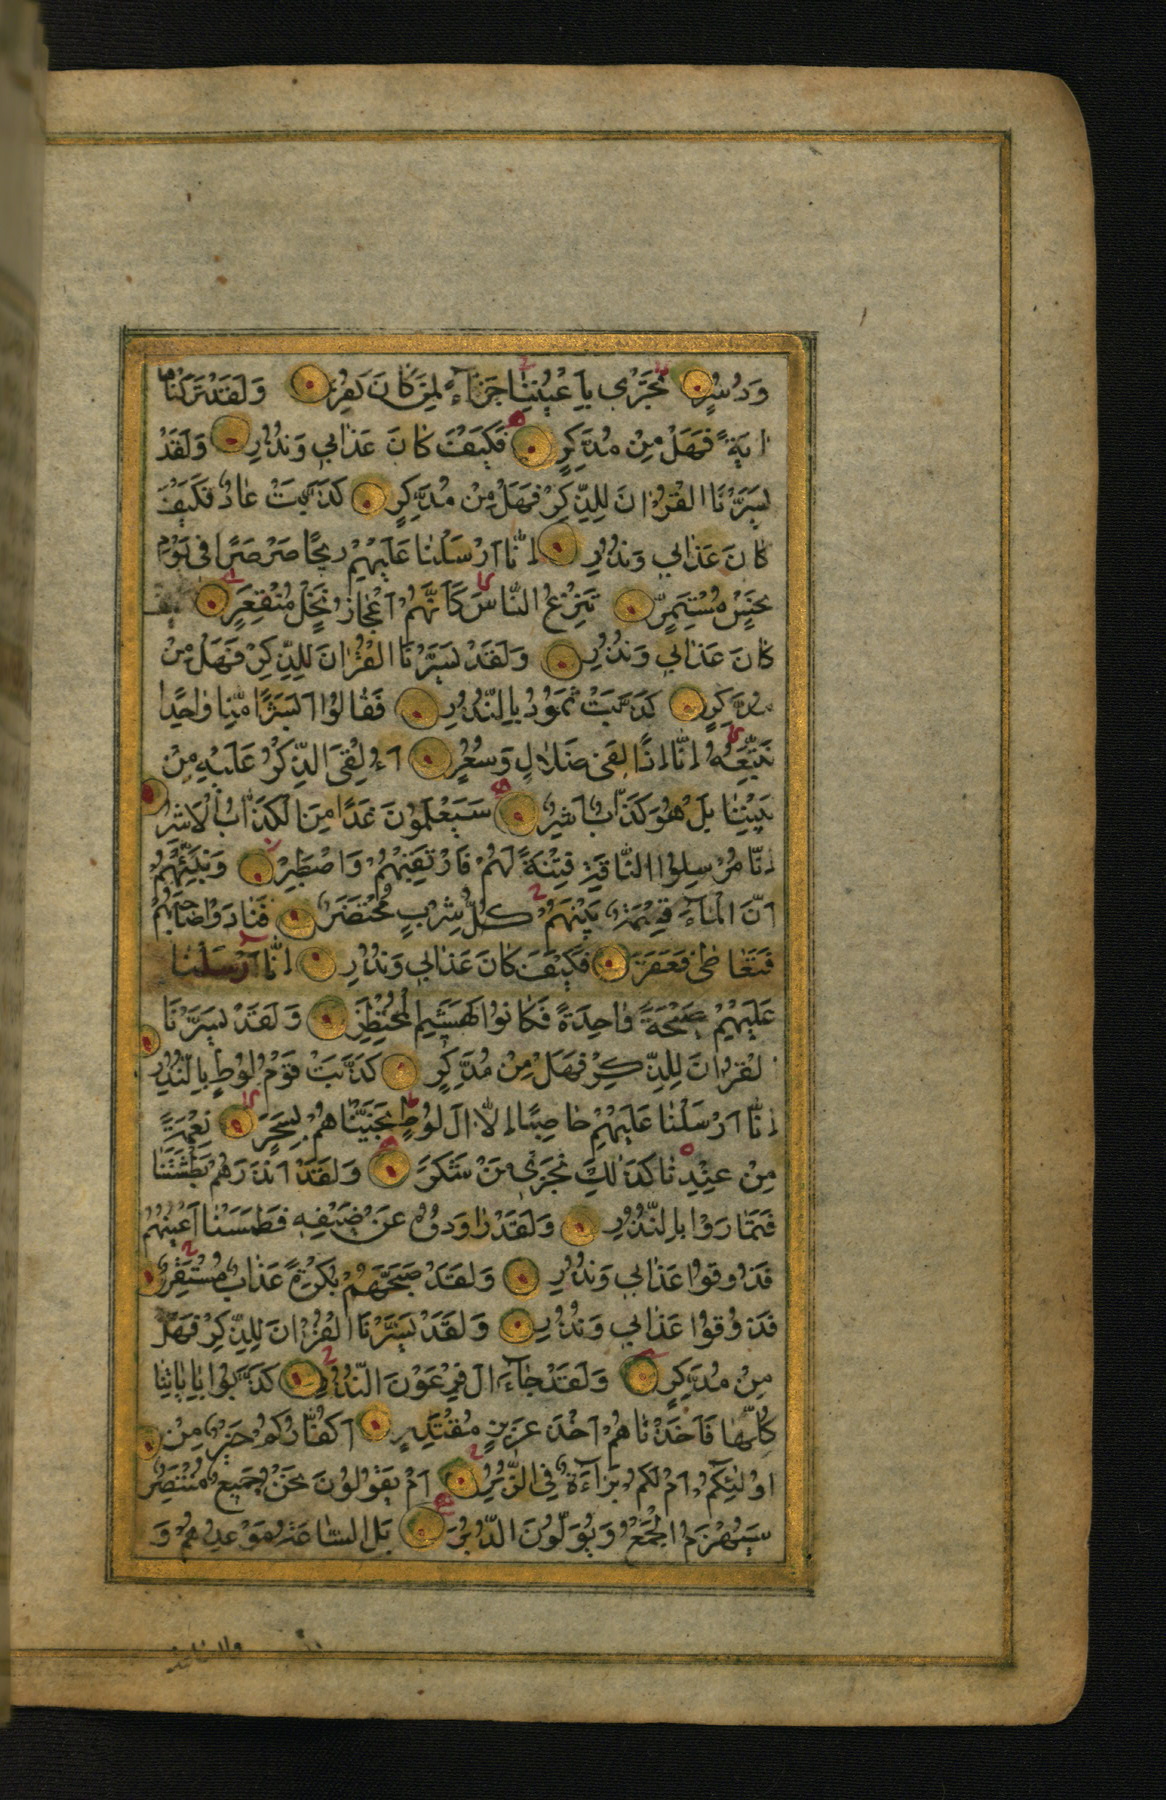 وَدُسُرٍ تَجْرِي بِاَعْيُنِنَا جَزَآءً لِمَنْ كَانَ كُفِرَ وَلَقَدْ تَرَكْنَاهَا
اٰيَةً فَهَلْ مِنْ مُدَّكِرٍ فَكَيْفَ كَانَ عَذَابِي وَنُذُرِ وَلَقَدْ
يَسَّرْنَا الْقُرْاٰنَ لِلذِّكْرِ فَهَلْ مِنْ مُدَّكِرٍ كَذَّبَتْ عَادٌ فَكَيْفَ
كَانَ عَذَابِي وَنُذُرِ اِنَّا اَرْسَلْنَا عَلَيْهِمْ رِيحًا صَرْصَرًا فِي يَوْمِ
نَحْسٍ مُسْتَمِرٍّ تَنْزِعُ النَّاسَ كَاَنَّهُمْ اَعْجَازُ نَخْلٍ مُنْقَعِرٍ فكيف
كَانَ عَذَابِي وَنُذُرِ وَلَقَدْ يَسَّرْنَا الْقُرْاٰنَ لِلذِّكْرِ فَهَلْ مِنْ
مُدَّكِرٍ كَذَّبَتْ ثَمُودُ بِالنُّذُرِ فَقَالُوا اَبَشَرًا مِنَّا وَاحِدًا
نَتَّبِعُهُ اِنَّا اِذًا لَفِي ضَلَالٍ وَسُعُرٍ ءَاُلْقِيَ الذِّكْرُ عَلَيْهِ مِنْ
بَيْنِنَا بَلْ هُوَ كَذَّابٌ اَشِرٌ سَيَعْلَمُونَ غَدًا مَنِ الْكَذَّابُ الْاَشِرُ
اِنَّا مُرْسِلُوا النَّاقَةِ فِتْنَةً لَهُمْ فَارْتَقِبْهُمْ وَاصْطَبِرْ وَنَبِّئْهُمْ
اَنَّ الْمَآءَ قِسْمَةٌ بَيْنَهُمْ كُلُّ شِرْبٍ مُحْتَضَرٌ فَنَادَوْا صَاحِبَهُمْ
فَتَعَاطٰى فَعَقَرَ فَكَيْفَ كَانَ عَذَابِي وَنُذُرِ اِنَّا اَرْسَلْنَا
عَلَيْهِمْ صَيْحَةً وَاحِدَةً فَكَانُوا كَهَشِيمِ الْمُحْتَظِرِ وَلَقَدْ يَسَّرْنَا
الْقُرْاٰنَ لِلذِّكْرِ فَهَلْ مِنْ مُدَّكِرٍ كَذَّبَتْ قَوْمُ لُوطٍ بِالنُّذُرِ
اِنَّا اَرْسَلْنَا عَلَيْهِمْ حَاصِبًا اِلَّا اٰلَ لُوطٍ نَجَّيْنَاهُمْ بِسَحَرٍ نِعْمَةً
مِنْ عِنْدِنَا كَذٰلِكَ نَجْزِي مَنْ شَكَرَ وَلَقَدْ اَنْذَرَهُمْ بَطْشَتَنَا
فَتَمَارَوْا بِالنُّذُرِ وَلَقَدْ رَاوَدُوهُ عَنْ ضَيْفِهِ فَطَمَسْنَا اَعْيُنَهُمْ
فَذُوقُوا عَذَابِي وَنُذُرِ وَلَقَدْ صَبَّحَهُمْ بُكْرَةً عَذَابٌ مُسْتَقِرٌّ
فَذُوقُوا عَذَابِي وَنُذُرِ وَلَقَدْ يَسَّرْنَا الْقُرْاٰنَ لِلذِّكْرِ فَهَلْ
مِنْ مُدَّكِرٍ وَلَقَدْ جَآءَ اٰلَ فِرْعَوْنَ النُّذُرُ كَذَّبُوا بِاٰيَاتِنَا
كُلِّهَا فَاَخَذْنَاهُمْ اَخْذَ عَزِيزٍ مُقْتَدِرٍ اَكُفَّارُكُمْ خَيْرٌ مِنْ
اُولٰئِكُمْ اَمْ لَكُمْ بَرَآءَةٌ فِي الزُّبُرِ اَمْ يَقُولُونَ نَحْنُ جَمِيعٌ مُنْتَصِرٌ
سَيُهْزَمُ الْجَمْعُ وَيُوَلُّونَ الدُّبُرَ بَلِ السَّاعَةُ مَوْعِدُهُمْ وَ
والساعة